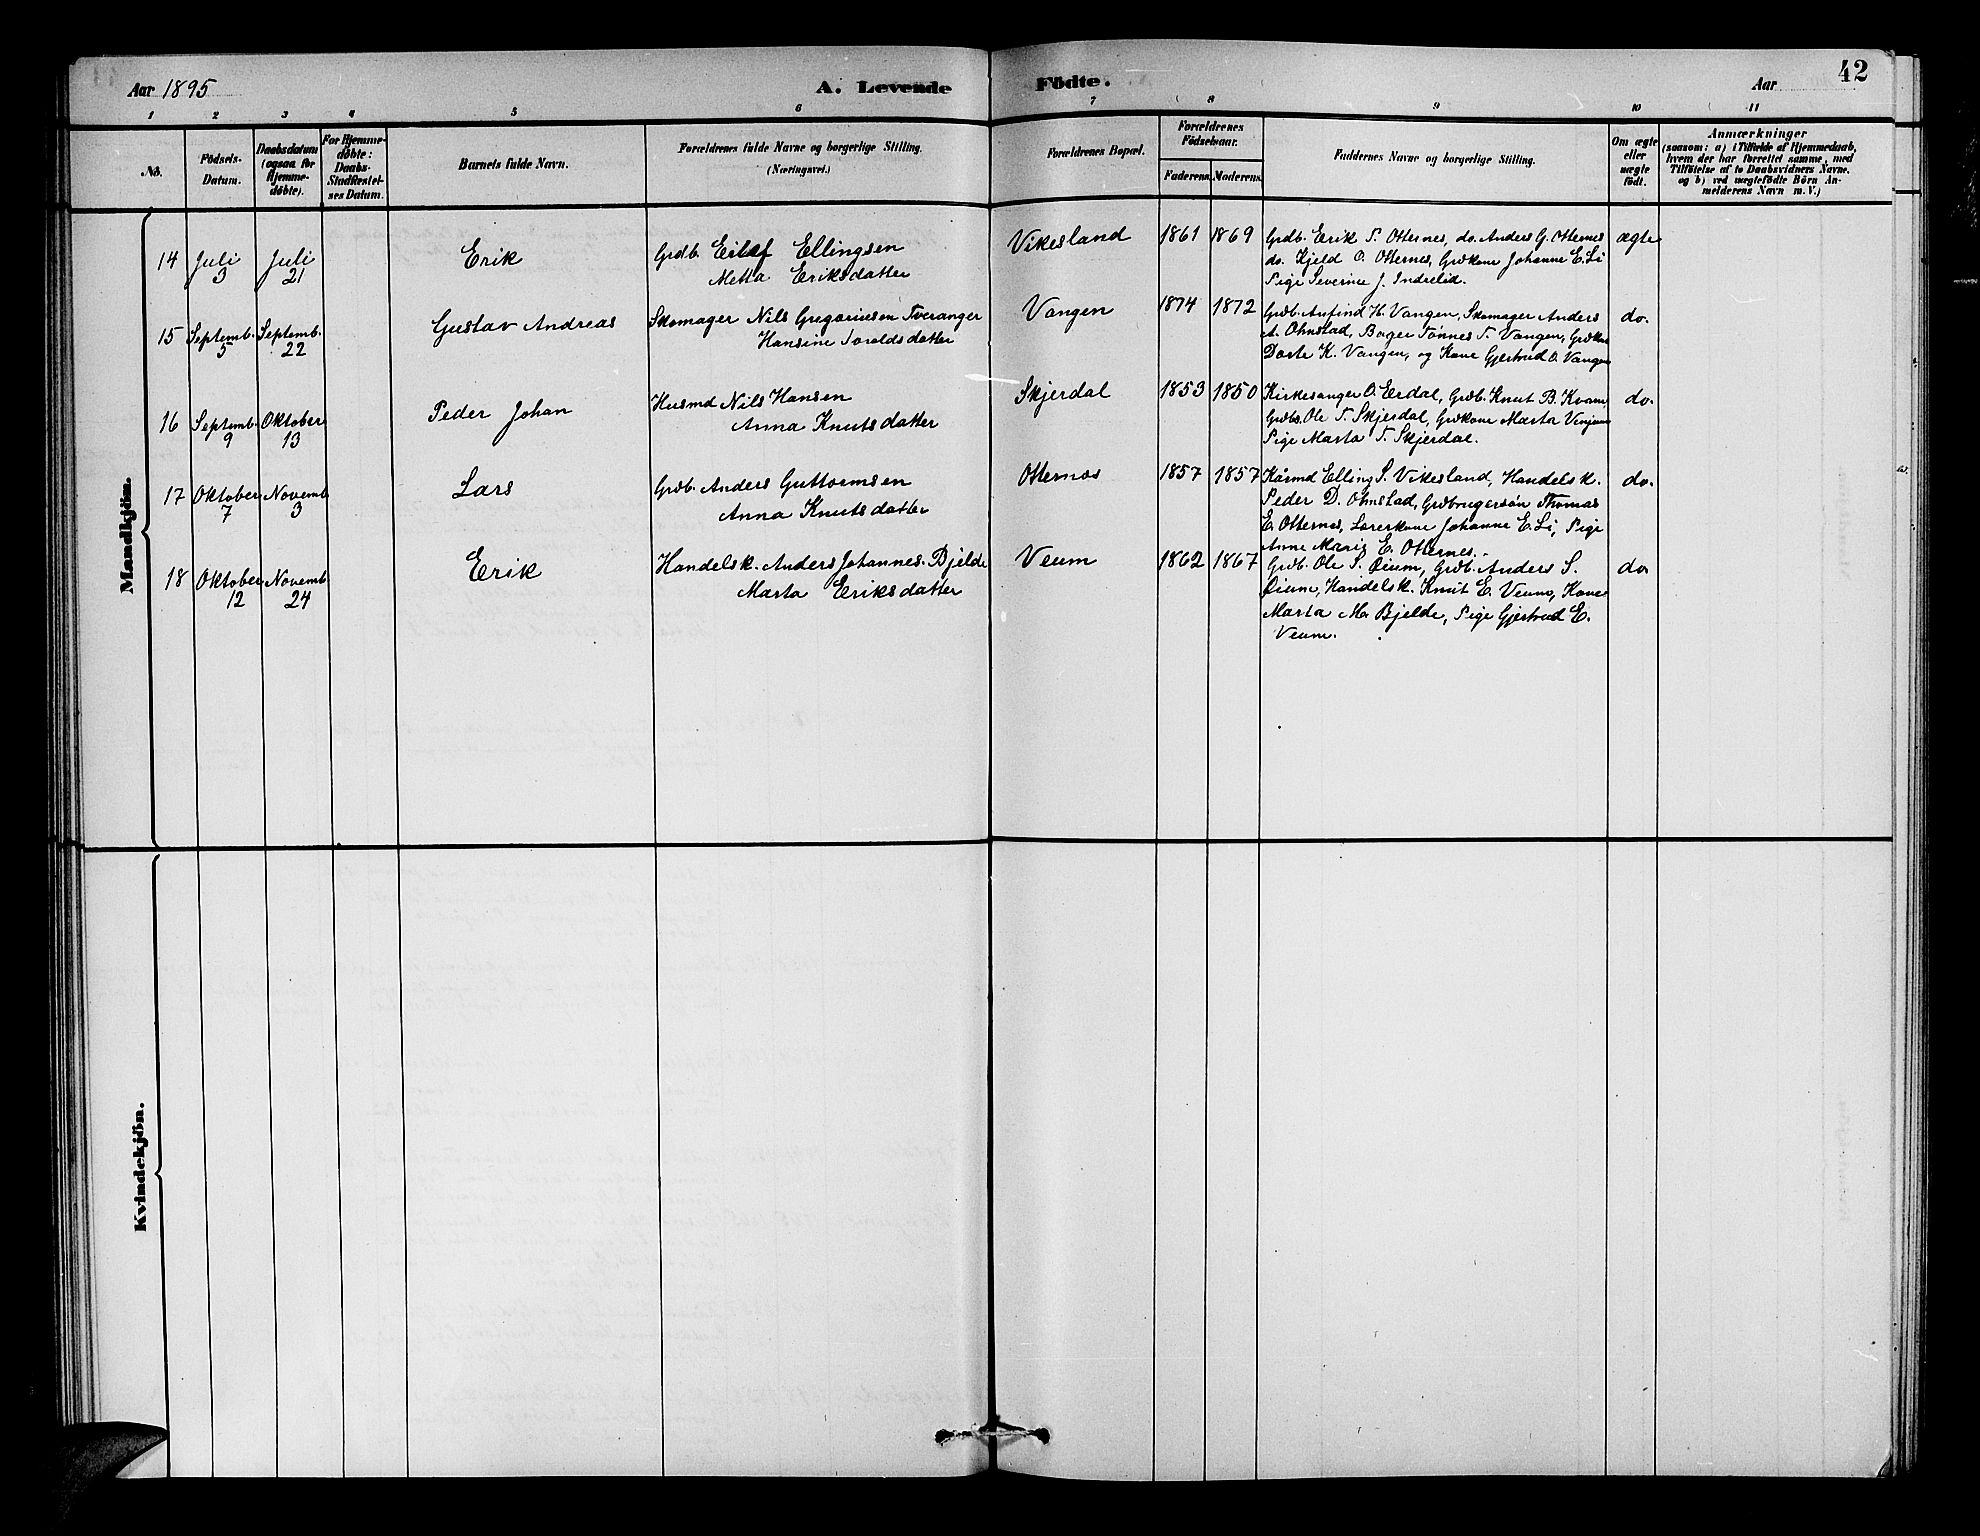 Aar 1895
A. Levende
Födte.
Aar
42
1 2 3 4 5 6 7 8 9 10 11
No.
Födsels-
Datum.
Daabsdatum
(ogsaa for
Hjemme-
döbte).
For Hjemme-
döbte:
Daabs-
Stadfæstel-
ses Datum.
Barnets fulde Navn.
Forældrenes fulde Navne og borgerlige Stilling.
(Næringsvei.)
Forældrenes Bopæl.
Forældrenes
Födselsaar.
Faderens. Moderens.
Faddernes Navne og borgerlige Stilling.
Om ægte
eller
uægte
födt.
Anmærkninger
(saasom: a) i Tilfælde af Hjemmedaab,
hvem der har forrettet samme, med
Tilföielse af to Daabsvidners Navne.
og b) ved uægtefödte Börn An-
melderens Navn m. V.)
Mandkjön.
14 Juli 3 Juli 21 Erik
Grdb. Eilef Ellingsen
Metta Eriksdatter
Vikesland 1861 1869
Grdb. Erik T. Otternes, do. Anders G. Otternes
do. Kjeld O. Otternes, Grdkone Johanne E. Li
Pige Severine J. Indrelid.
ægte
15 Septemb. 5 Septemb. 22 Gustav Andreas
Skomager Nils Gregoriusen Tveranger
Hansine Toraldsdatter
Vangen 1874 1872
Grdb. Anfind H. Vangen, Skomager Anders
A. Ohnstad, Bager Tønnes T. Vangen, Grdkone
Dorte K. Vangen, og Kone Gjertrud O. Vangen
do.
16 Septemb. 9 Oktober 13 Peder Johan
Husmd Nils Hansen
Anna Knutsdatter
Skjerdal 1853 1850
Kirkesanger O. Eerdal, Grdb. Knut B. Kvam,
Grdbs. Ole T. Skjerdal, Grdkone Marta Vinjum
Pige Marta T. Skjerdal.
do.
17 Oktober 7 Novemb 3 Lars
Grdb. Anders Guttormsen
Anna Knutsdatter
Otternes 1857 1857
Kårmd Elling S. Vikesland, Handelsk.
Peder D. Ohnstad, Grdbrugersøn Thomas
E. Otternes, Lærerkone Johanne E. Li, Pige
Anne Marie E. Otternes.
do.
18 Oktober 12 Novemb 24 Erik
Handelsk. Anders Johannes. Bjelde
Marta Eriksdatter
Veum 1862 1867
Grdb. Ole S. Øium, Grdb. Anders S.
Øium, Handelsk. Knut E. Veum, Kone
Marta M. Bjelde, Pige Gjertrud E.
Veum.
do
Kvindekjön.